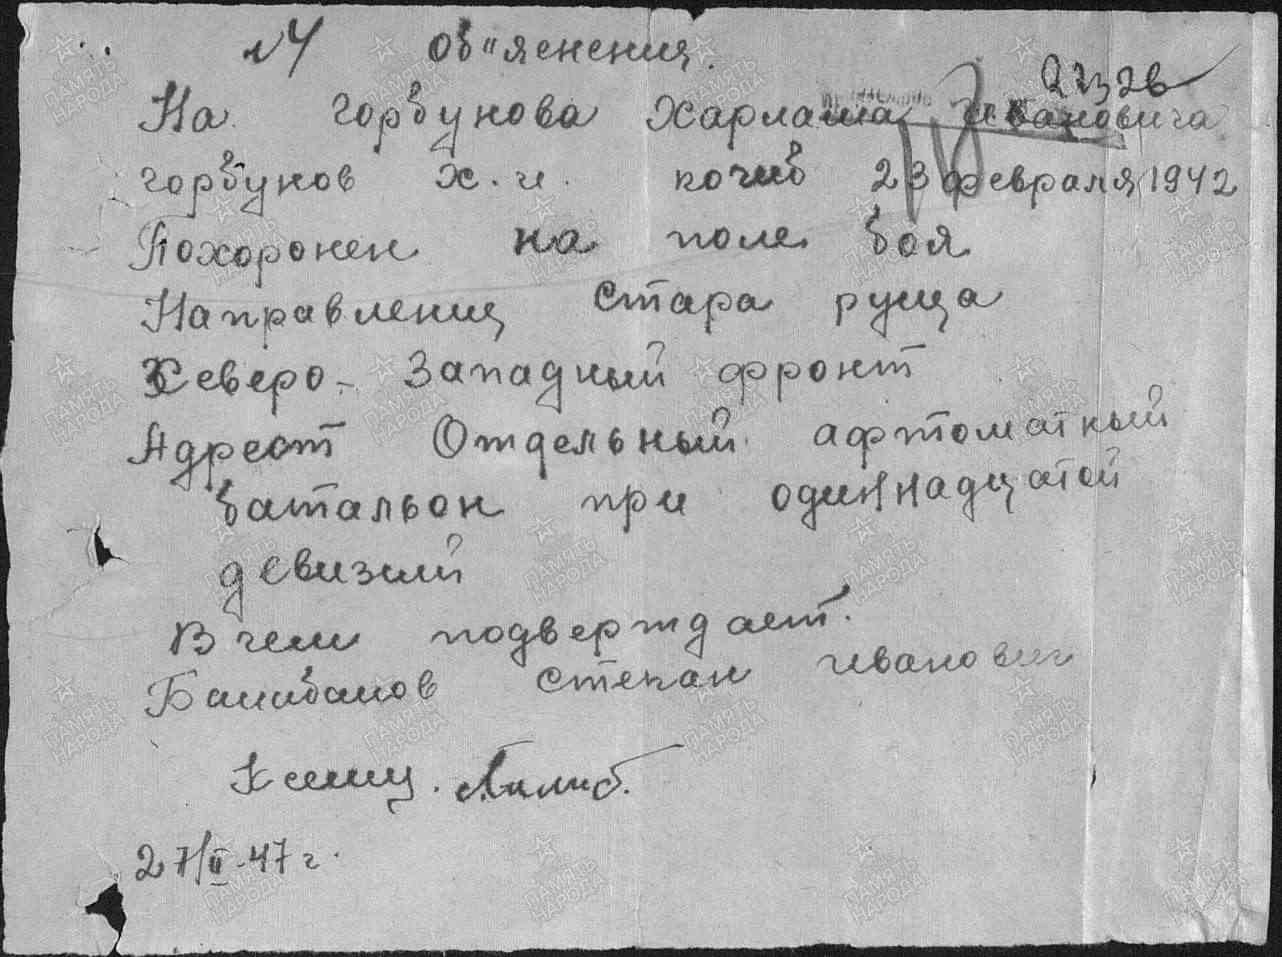 №4 Об"яснения.
22326
На Горбунова Харлама Ивановича
Горбунов Х.И. погиб 23 февраля 1942
Похоронен на поле боя
Направлениц Стара руща
Северо-Западный фронт
Адрест Отдельный афтоматный
батальон при одиннадцатой
девизий
В чем подверждает.
Степан Иванович
27/II-47 г.
ПАМЯТЬ НАРОДА